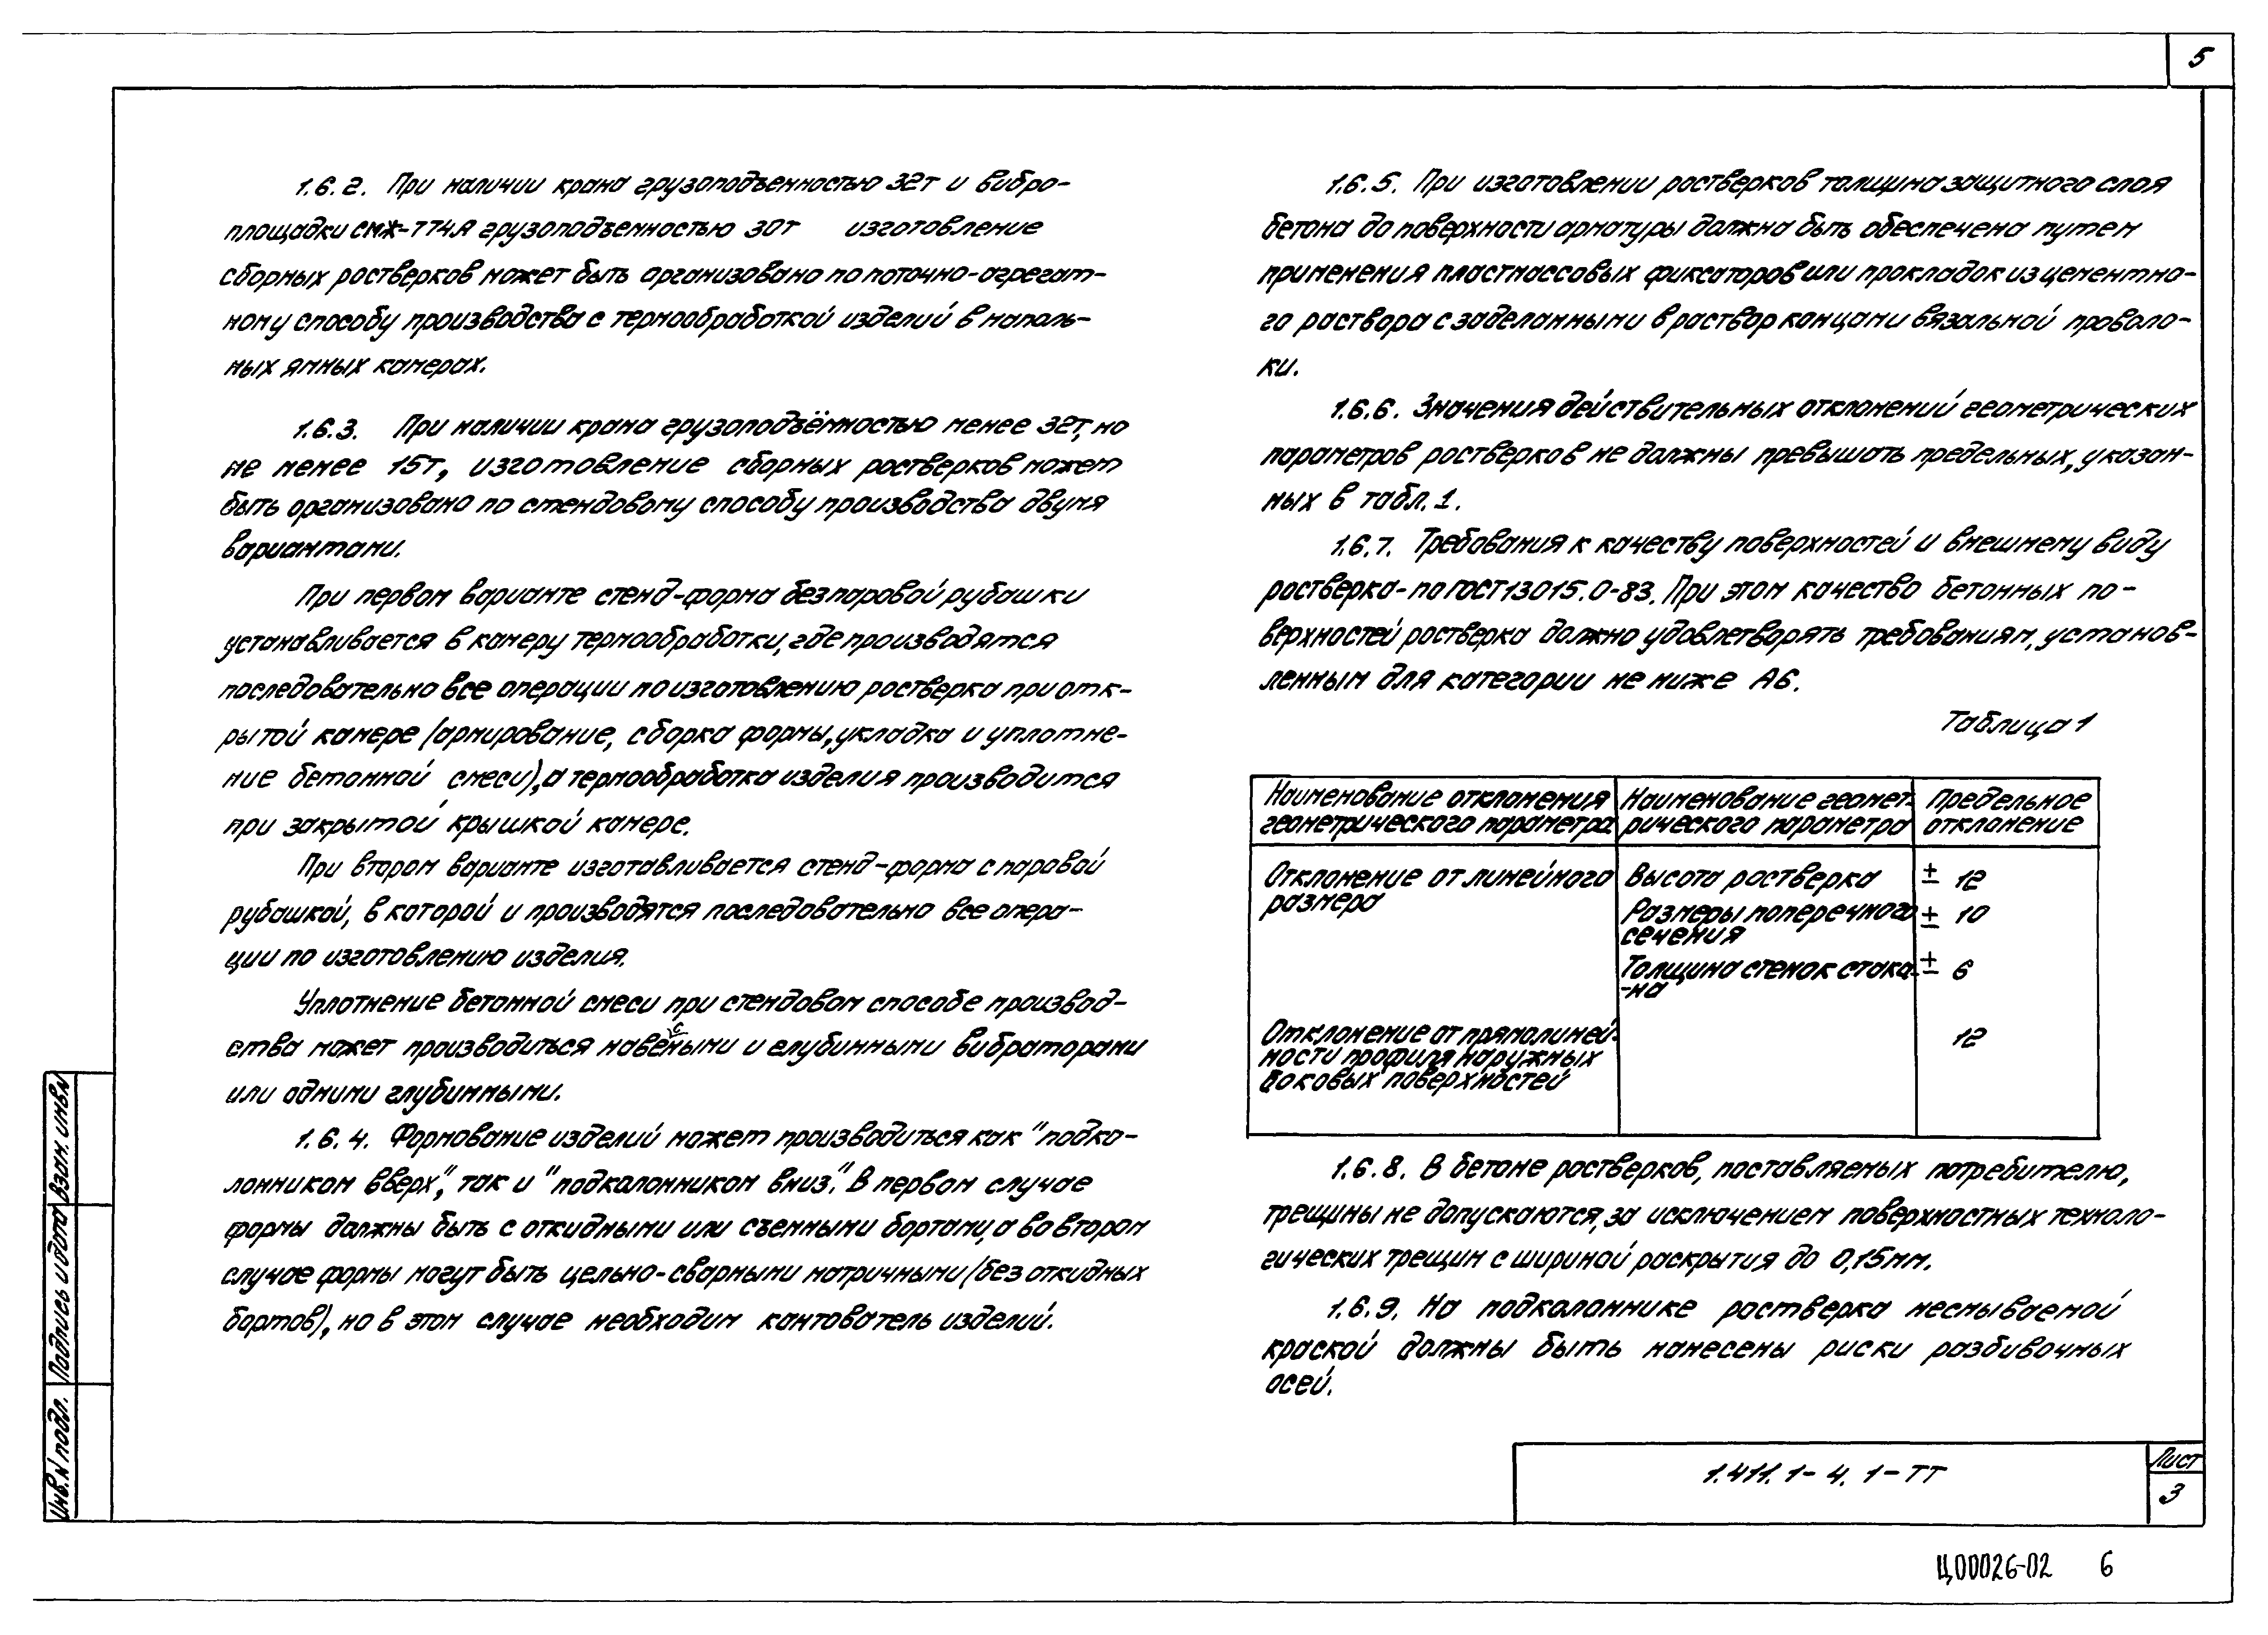 5
1.6.2. При наличии крана грузоподъенностью 32т и вибро-
площадки СМЖ-774А грузоподъенностью 30т изготовление
сборных ростверков может быть организовано по поточно-агрегат-
ному способу производства с термообработкой изделий в наполь-
ных ямных камерах.
1.6.3. При наличии крана грузоподъёмностью менее 32т, но
не менее 15т, изготовление сборных ростверков может
быть организовано по стендовому способу производства двумя
вариантами.
При первом варианте стенд-форма без паровой рубашки
устанавливается в камеру термообработки, где производятся
последовательно все операции по изготовлению ростверка при отк-
рытой камере (армирование, сборка формы, укладка и уплотне-
ние бетонной смеси), а термообработка изделия производится
при закрытой крышкой камере.
При втором варианте изготавливается стенд-форма с паровой
рубашкой, в которой и производятся последовательно все опера-
ции по изготовлению изделия.
Уплотнение бетонной смеси при стендовом способе производ-
ства может производиться навесными и глубинными вибраторами
или одними глубинными.
1.6.4. Формование изделий может производиться как "подко-
лонником вверх", так и "подколонником вниз". В первом случае
формы должны быть с откидными или съемными бортами, а во втором
случае формы могут быть цельно-сварными матричными (без откидных
бортов), но в этом случае необходим кантователь изделий.
1.6.5. При изготовлении ростверков толщина защитного слоя
бетона до поверхности арматуры должна быть обеспечена путем
применения пластмассовых фиксаторов или прокладок из цементно-
го раствора с заделанными в раствор концами вязальной проволо-
ки.
1.6.6. Значения действительных отклонений геометрических
параметров ростверков не должны превышать предельных, указан-
ных в табл. 1.
1.6.7. Требования к качеству поверхностей и внешнему виду
ростверка - по ГОСТ 13015.0-83. При этом качество бетонных по-
верхностей ростверка должно удовлетворять требованиям, установ-
ленным для категории не ниже А6.
Таблица 1
Наименование отклонения
геометрического параметра
Наименование геомет-
рического параметра
Предельное
отклонение
Отклонение от линейного
размера
Высота ростверка ± 12
Размеры поперечного ± 10
сечения
Толщина стенок стака- ± 6
-на
Отклонение от прямолиней-
ности профиля наружных
боковых поверхностей
12
1.6.8. В бетоне ростверков, поставляемых потребителю,
трещины не допускаются, за исключением поверхностных техноло-
гических трещин с шириной раскрытия до 0,15мм.
1.6.9. На подколоннике ростверка несмываемой
краской должны быть нанесены риски разбивочных
осей.
Инв.N подл.
Подпись и дата
Взам. инв.N
1.411.1-4.1-ТТ
Лист
3
Ц00026-02 6